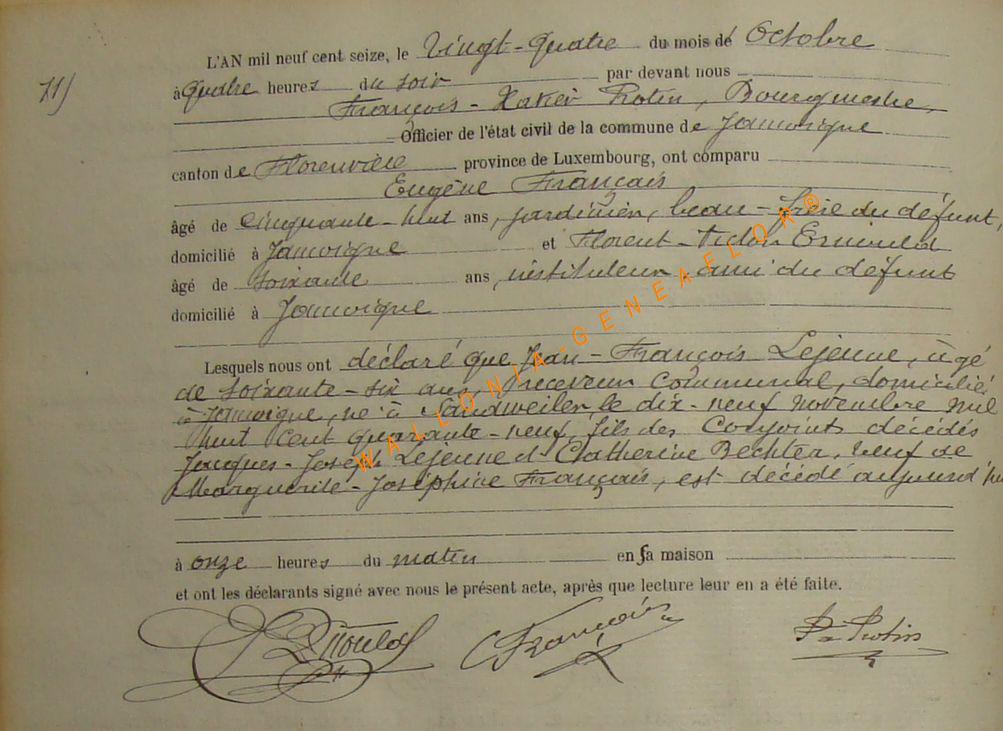 L'AN mil neuf cent seize, le Vingt-quatre du mois de Octobre
11)
à quatre heures du soir par devant nous
François-Xavier Protin, Bourgmestre,
Officier de l'état civil de la commune de Jamoigne
canton de Florenville province de Luxembourg, ont comparu
Eugène Français
âgé de cinquante-huit ans, jardinier, beau-frère du défunt,
domicilié à Jamoigne et Florent-Victor
âgé de soixante ans, instituteur, ami du défunt
domicilié à Jamoigne
Lesquels nous ont déclaré que Jean-François Lejeune, âgé
de soixante-six ans, receveur communal, domicilié
à Jamoigne, né à Sandweiler, le dix-neuf novembre mil
huit cent quarante-neuf, fils des conjoints décédés
Jacques-Joseph Lejeune et Catherine Bechter, veuf de
Marguerite-Joséphine Français, est décédé aujourd'hui
à onze heures du matin en sa maison
et ont les déclarants signé avec nous le présent acte, après que lecture leur en a été faite.
Français
Protin
WALLONIA-GENEAFLOR®